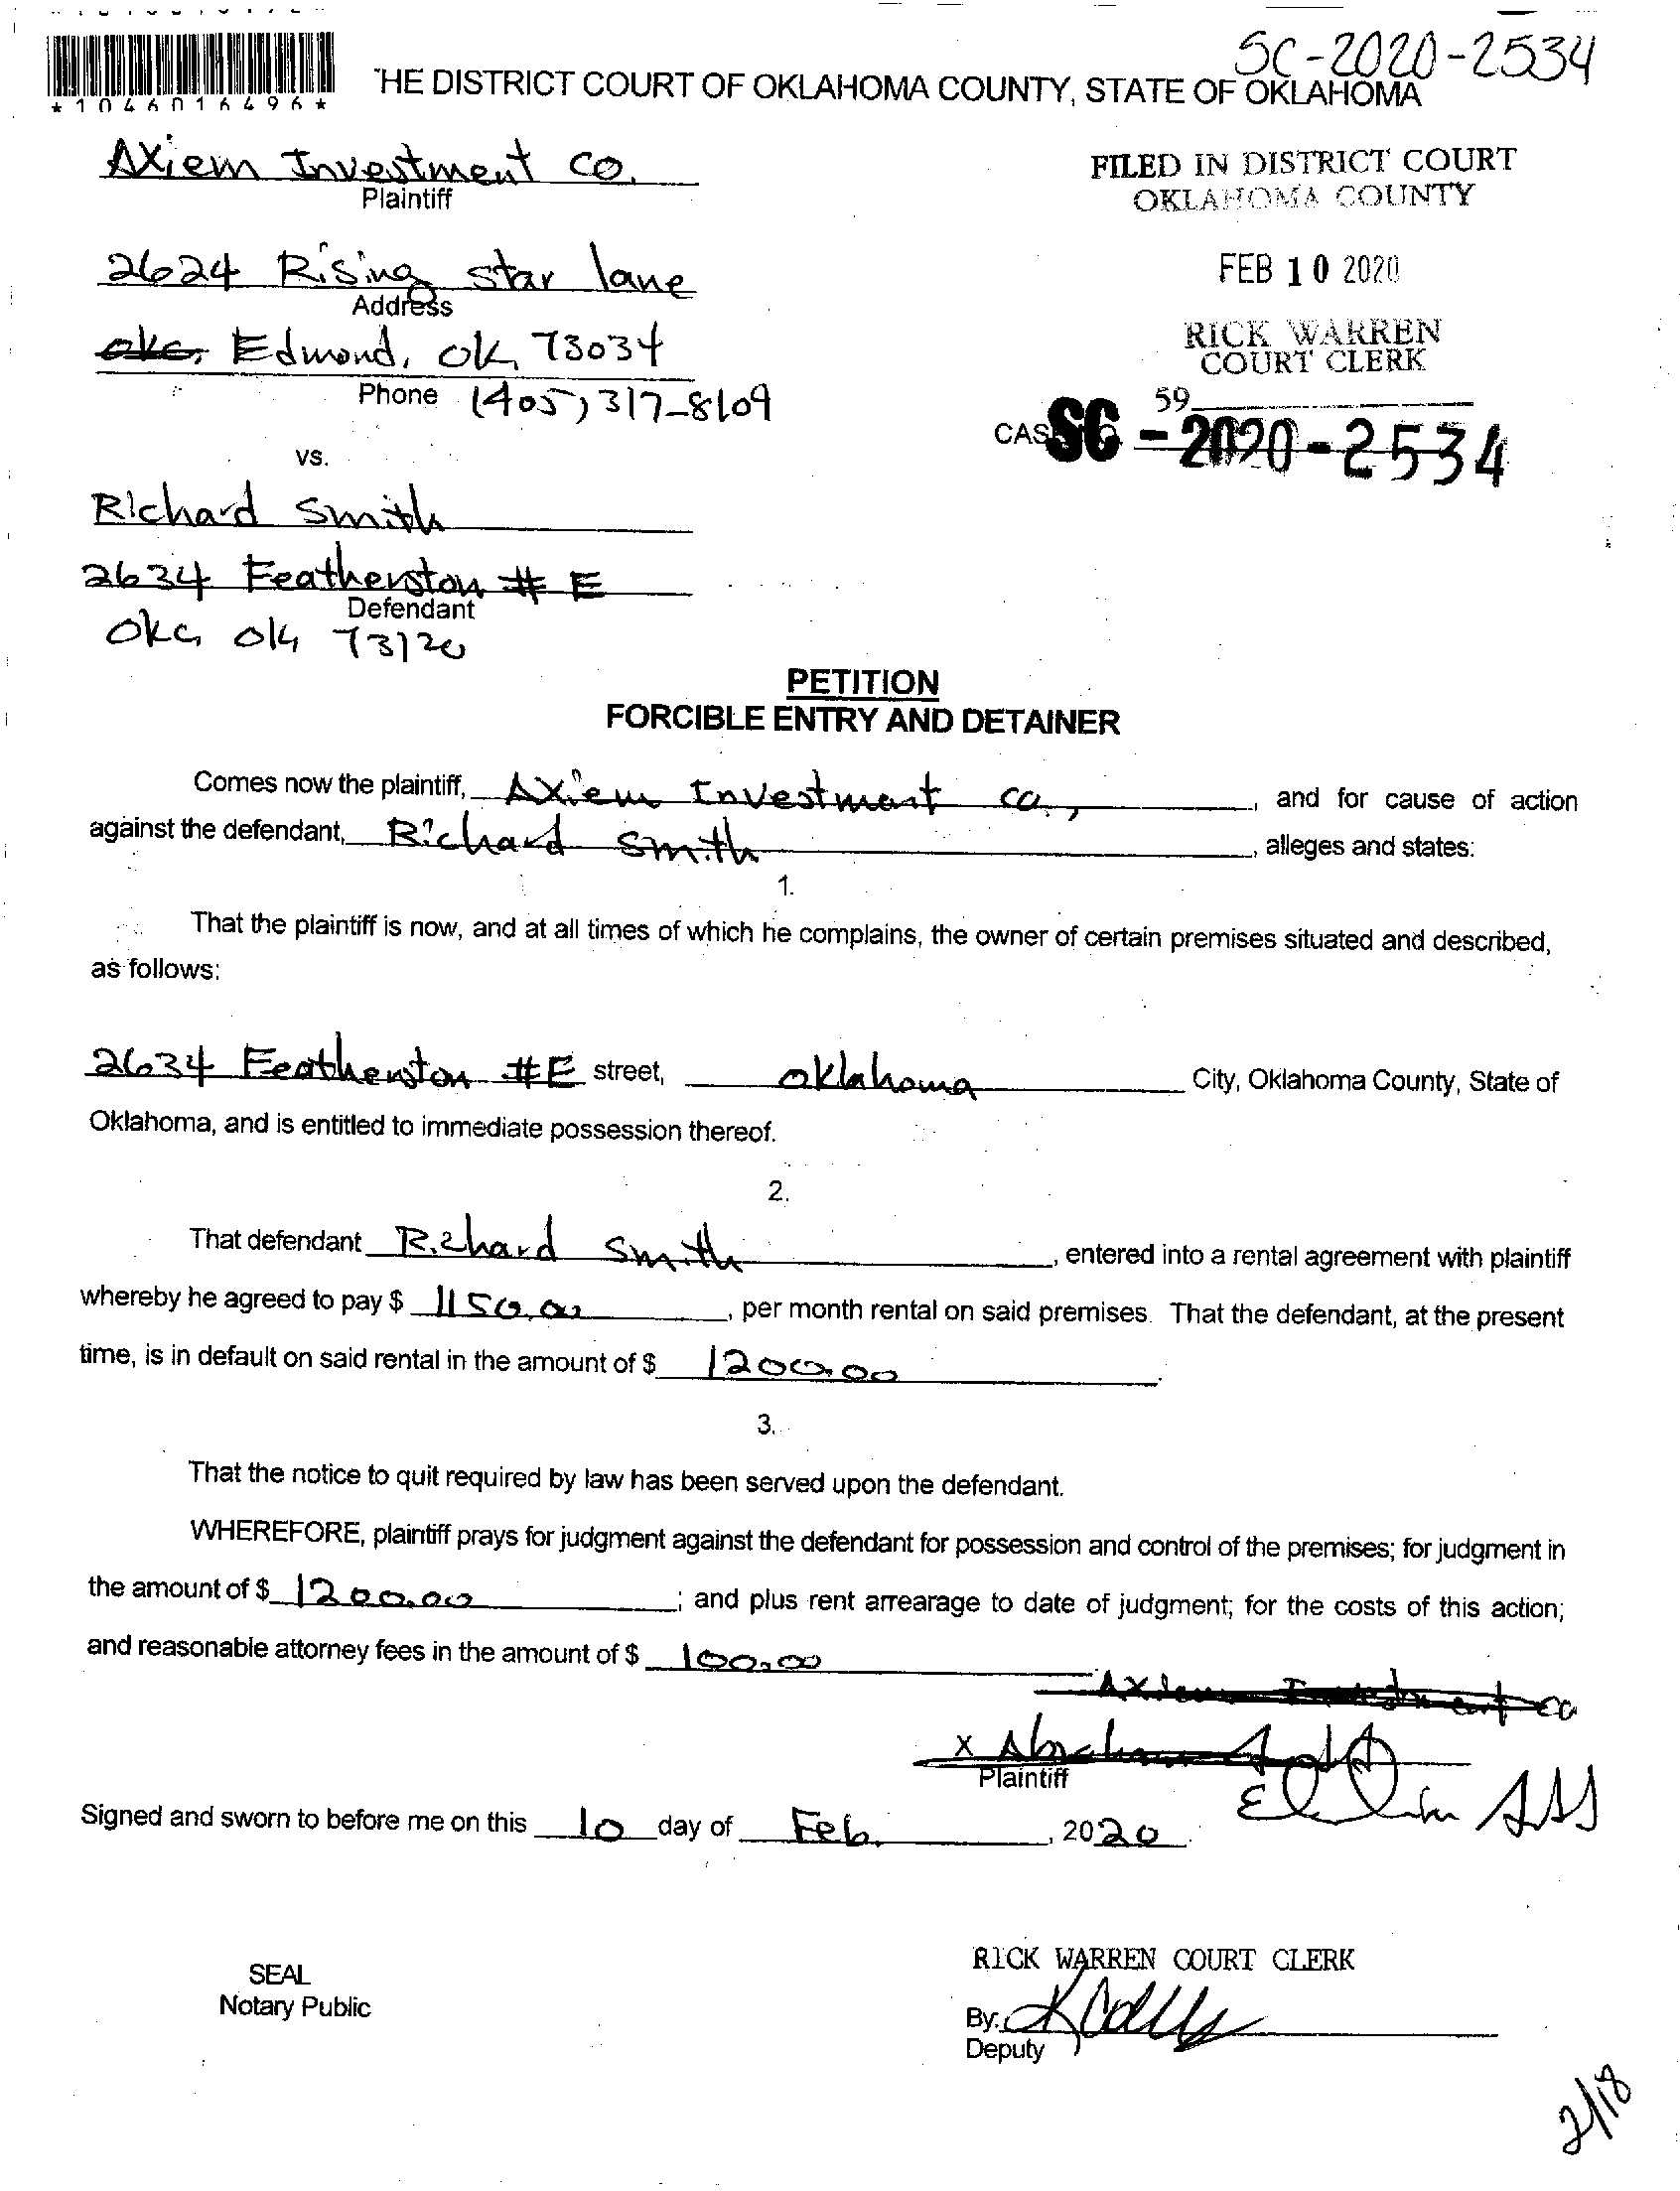 SC-2020-2534
*1046016496*
THE DISTRICT COURT OF OKLAHOMA COUNTY, STATE OF OKLAHOMA
Axiem Investment Co.
Plaintiff
FILED IN DISTRICT COURT
OKLAHOMA COUNTY
2624 Rising Star lane
Address
FEB 10 2020
okc, Edmond, OK, 73034
RICK WARREN
COURT CLERK
Phone (405) 317-8109
59
CASE NO. SC-2020-2534
vs.
Richard Smith
2634 Featherston # E
Defendant
Okc, ok 73120
PETITION
FORCIBLE ENTRY AND DETAINER
Comes now the plaintiff, Axiem Investment co., and for cause of action
against the defendant, Richard Smith, alleges and states:
1.
That the plaintiff is now, and at all times of which he complains, the owner of certain premises situated and described,
as follows:
2634 Featherston #E street, oklahoma City, Oklahoma County, State of
Oklahoma, and is entitled to immediate possession thereof.
2.
That defendant Richard Smith, entered into a rental agreement with plaintiff
whereby he agreed to pay $ 1150.00, per month rental on said premises. That the defendant, at the present
time, is in default on said rental in the amount of $ 1200.00.
3.
That the notice to quit required by law has been served upon the defendant.
WHEREFORE, plaintiff prays for judgment against the defendant for possession and control of the premises; for judgment in
the amount of $ 1200.00; and plus rent arrearage to date of judgment; for the costs of this action;
and reasonable attorney fees in the amount of $ 100.00
Axiem Investment co
X
Plaintiff
Signed and sworn to before me on this 10 day of Feb., 2020.
SEAL
Notary Public
RICK WARREN COURT CLERK
By:
Deputy
2/18